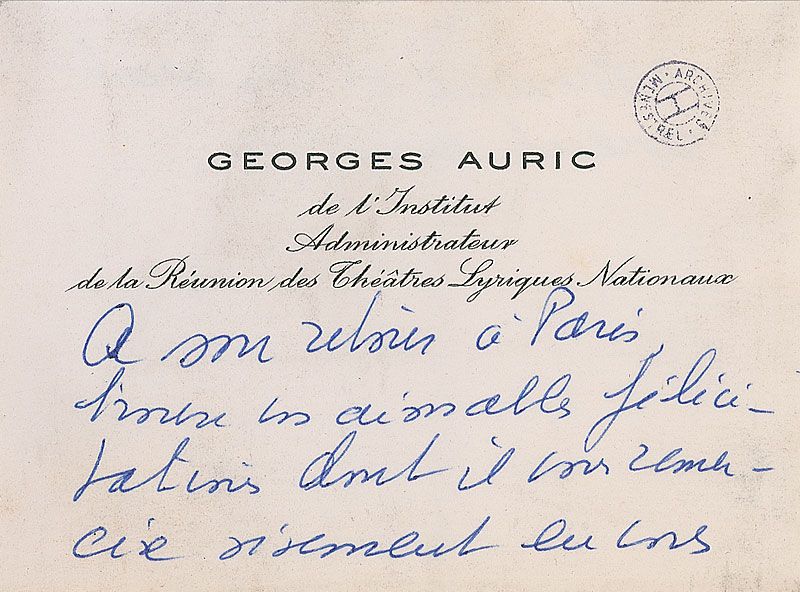 ARCHIVES · MENESTREL · H
GEORGES AURIC
de l'Institut
Administrateur
de la Réunion des Théâtres Lyriques Nationaux
A son retour à Paris,
trouve vos aimables félici-
tations dont il vous remer-
cie vivement en vous